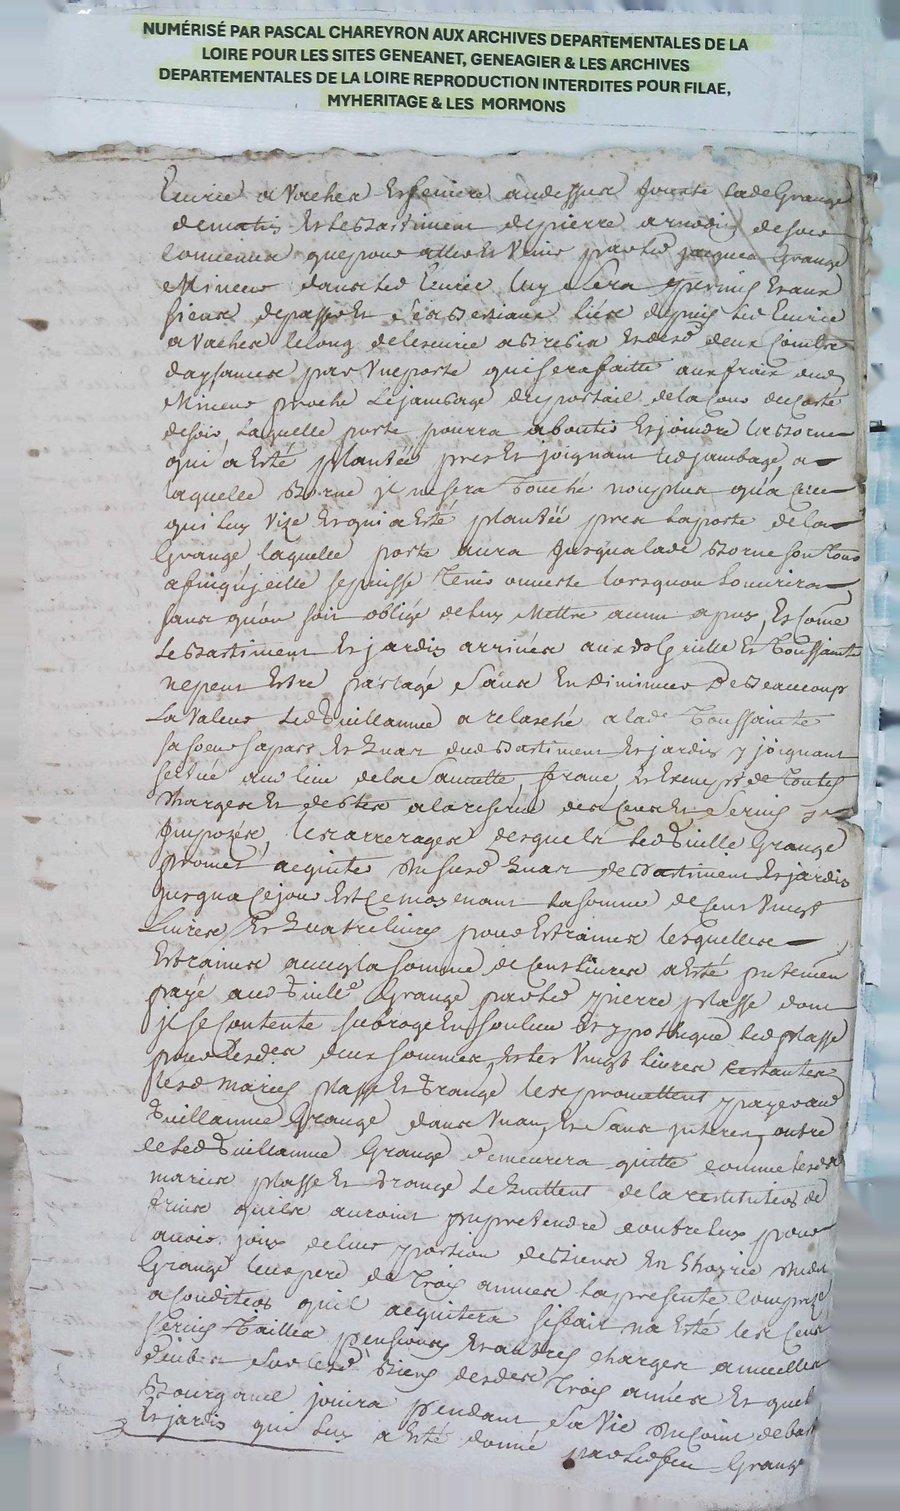 NUMÉRISÉ PAR PASCAL CHAREYRON AUX ARCHIVES DEPARTEMENTALES DE LA
LOIRE POUR LES SITES GENEANET, GENEAGIER & LES ARCHIVES
DEPARTEMENTALES DE LA LOIRE REPRODUCTION INTERDITES POUR FILAE,
MYHERITAGE & LES MORMONS
Eurie a Vaches Et feniere audessus Jouste lade Grange
de matin Et le Bastiment de pierre de soir
que pour aller Et Venir par led jacques Grange
Mineur dans led Eurie luy sera permis Et aux
siens de passer Et depuis led Eurie
a Vaches le long de leseurie a Brebis Et desd deux
daysances par Une porte qui sera faitte aux fraix dud
Mineur proche Le jambage du portail de la Cour du Costé
de soir, Laquelle porte pourra aboutir Et joindre la Borne
qui a Esté plantée pres Et joignant led jambage, a
laquelle Borne jl ne sera Touché non plus qu'a Celle
qui luy Vize Et qui a Esté plantée pres la porte de la
Grange laquelle porte aura Jusqua lade Borne son Tour
afin qu'jcelle se puisse Tenir ouverte lorsquon Louvrira
sans qu'on soit obligé de luy Mettre aucun apuy, Et Come
Le Bastiment Et jardin arrivés auxds Guille Et Toussainte
ne peut Estre partagé sans En Diminuer De Beaucoup
La Valeur Led Guillaume a relasché a lade Toussainte
sa soeur sa part Et Quart dud Bastiment Et jardin y joignant
scitué au lieu de la franc Et Exempt de Touttes
Charges Et debtes a la reserve des Cens Et Servis
Jmpozés, les arrerages desquels led Guille Grange
promet acquiter du susd Quart de Bastiment Et jardin
jusqua Ce jour Et Ce moyenant la somme de Cent Vingt
Livres Et Quatre livres pour Estraines lesquelles
Estraines avecq la somme de Cent Livres a Esté presentement
payé aud Guille Grange par led pierre plasse dont
jl se Contente subroge En son lieu Et ypotheque led plasse
pour lesdes deux sommes, Et les Vingt livres restantes
lesd mariés plasse Et Grange les promettent payer aud
Guillaume Grange dans Un an Et Sans jnterest, outre
Ce led Guillaume Grange demeurera quitte comme lesd
mariés plasse Et Grange Le Quittent de la restitution de
fruits quils auroint pu pretendre Contre luy pour
avoir joüy de leur portion de Biens En Choyrie dud
Grange leur pere de Trois années la presente Comprise
a Condition quil acquitera si fait na Esté les Cens
Servis Tailles pensions Et autres charges annuelles
deubes Sur lesd Biens desdes Trois années Et que
jouira pendant Sa Vie du Coin de bas
Et jardin qui luy a Esté donné par led feu Grange